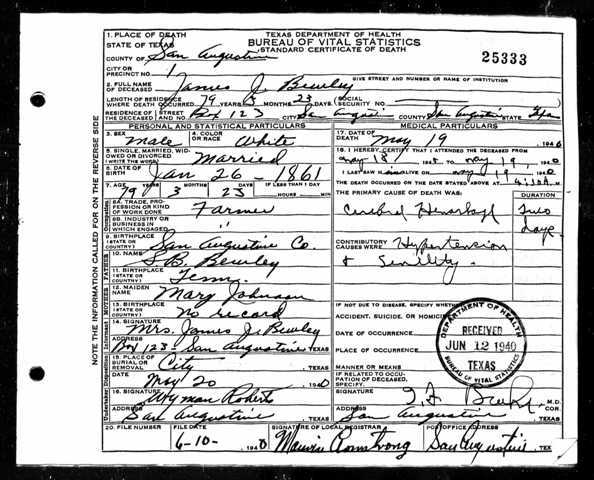 TEXAS DEPARTMENT OF HEALTH
BUREAU OF VITAL STATISTICS
STANDARD CERTIFICATE OF DEATH
25333
1. PLACE OF DEATH
STATE OF TEXAS
COUNTY OF San Augustine
CITY OR PRECINCT NO. 1
GIVE STREET AND NUMBER OR NAME OF INSTITUTION
2. FULL NAME OF DECEASED James J. Bewley
LENGTH OF RESIDENCE WHERE DEATH OCCURRED 79 YEARS 3 MONTHS 23 DAYS SOCIAL SECURITY NO.
RESIDENCE OF THE DECEASED STREET AND NO. Box 123 CITY San Augustine COUNTY San Augustine STATE Texas
PERSONAL AND STATISTICAL PARTICULARS
3. SEX Male 4. COLOR OR RACE White
5. SINGLE, MARRIED, WIDOWED OR DIVORCED (WRITE THE WORD) Married
6. DATE OF BIRTH Jan 26 - 1861
7. AGE 79 YEARS 3 MONTHS 23 DAYS IF LESS THAN 1 DAY HOURS MIN
8A. TRADE, PROFESSION OR KIND OF WORK DONE Farmer
8B. INDUSTRY OR BUSINESS IN WHICH ENGAGED "
9. BIRTHPLACE (STATE OR COUNTRY) San Augustine Co.
FATHER
10. NAME S. B. Bewley
11. BIRTHPLACE (STATE OR COUNTRY) Tenn.
MOTHER
12. MAIDEN NAME Mary Johnson
13. BIRTHPLACE (STATE OR COUNTRY) No record
14. SIGNATURE Mrs. James J. Bewley
ADDRESS Box 123 - San Augustine TEXAS
15. PLACE OF BURIAL OR REMOVAL City
May 20 1940
16. SIGNATURE Wyman Roberts
ADDRESS San Augustine TEXAS
MEDICAL PARTICULARS
17. DATE OF DEATH May 19 1940
18. I HEREBY CERTIFY THAT I ATTENDED THE DECEASED FROM
May 18 1940 TO May 19, 1940
I LAST SAW H ALIVE ON May 19, 1940
THE DEATH OCCURRED ON THE DATE STATED ABOVE AT M.
THE PRIMARY CAUSE OF DEATH WAS: DURATION
Two days
CONTRIBUTORY CAUSES WERE Hypertension
+ Senility.
IF NOT DUE TO DISEASE, SPECIFY WHETHER
ACCIDENT, SUICIDE, OR HOMICIDE
DATE OF OCCURRENCE
PLACE OF OCCURRENCE
MANNER OR MEANS
IF RELATED TO OCCUPATION OF DECEASED, SPECIFY.
SIGNATURE M.D. COR.
ADDRESS San Augustine TEXAS
DEPARTMENT OF HEALTH
RECEIVED
JUN 12 1940
TEXAS
BUREAU OF VITAL STATISTICS
20. FILE NUMBER FILE DATE 6-10- 1940 SIGNATURE OF LOCAL REGISTRAR Armstrong POSTOFFICE ADDRESS San Augustine, TEX
NOTE THE INFORMATION CALLED FOR ON THE REVERSE SIDE